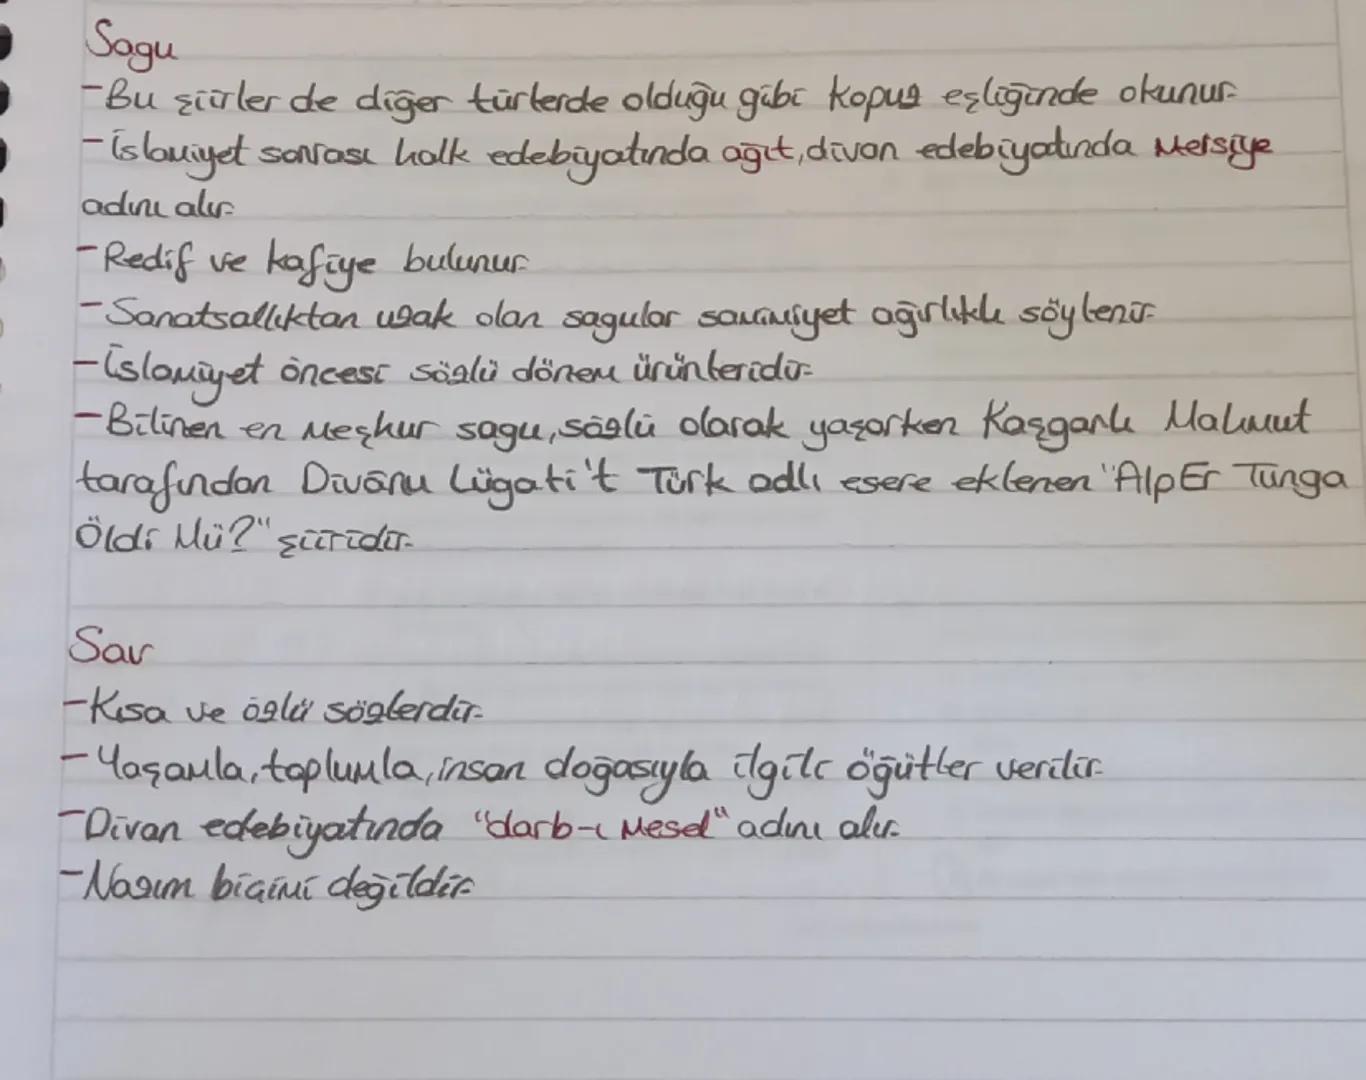 Sagu
-Bu şiirler de diğer türlerde olduğu gibi kopuz eşliğinde okunur.
-İslamiyet sonrası halk edebiyatında ağıt, divan edebiyatında mersiye
adını alır.
-Redif ve kafiye bulunur.
-Sanatsallıktan uzak olan sagular samimiyet ağırlıklı söylenir.
-İslamiyet öncesi sözlü dönem ürünleridir.
-Bilinen en meşhur sagu, sözlü olarak yaşarken Kaşgarlı Mahmut
tarafından Divânu Lügati't Türk adlı esere eklenen "Alp Er Tunga
Öldi Mü?" şiiridir.
Sav
-Kısa ve özlü sözlerdir.
-Yaşamla, toplumla, insan doğasıyla ilgili öğütler verilir.
-Divan edebiyatında "darb-ı mesel" adını alır.
-Nazım biçimi değildir.